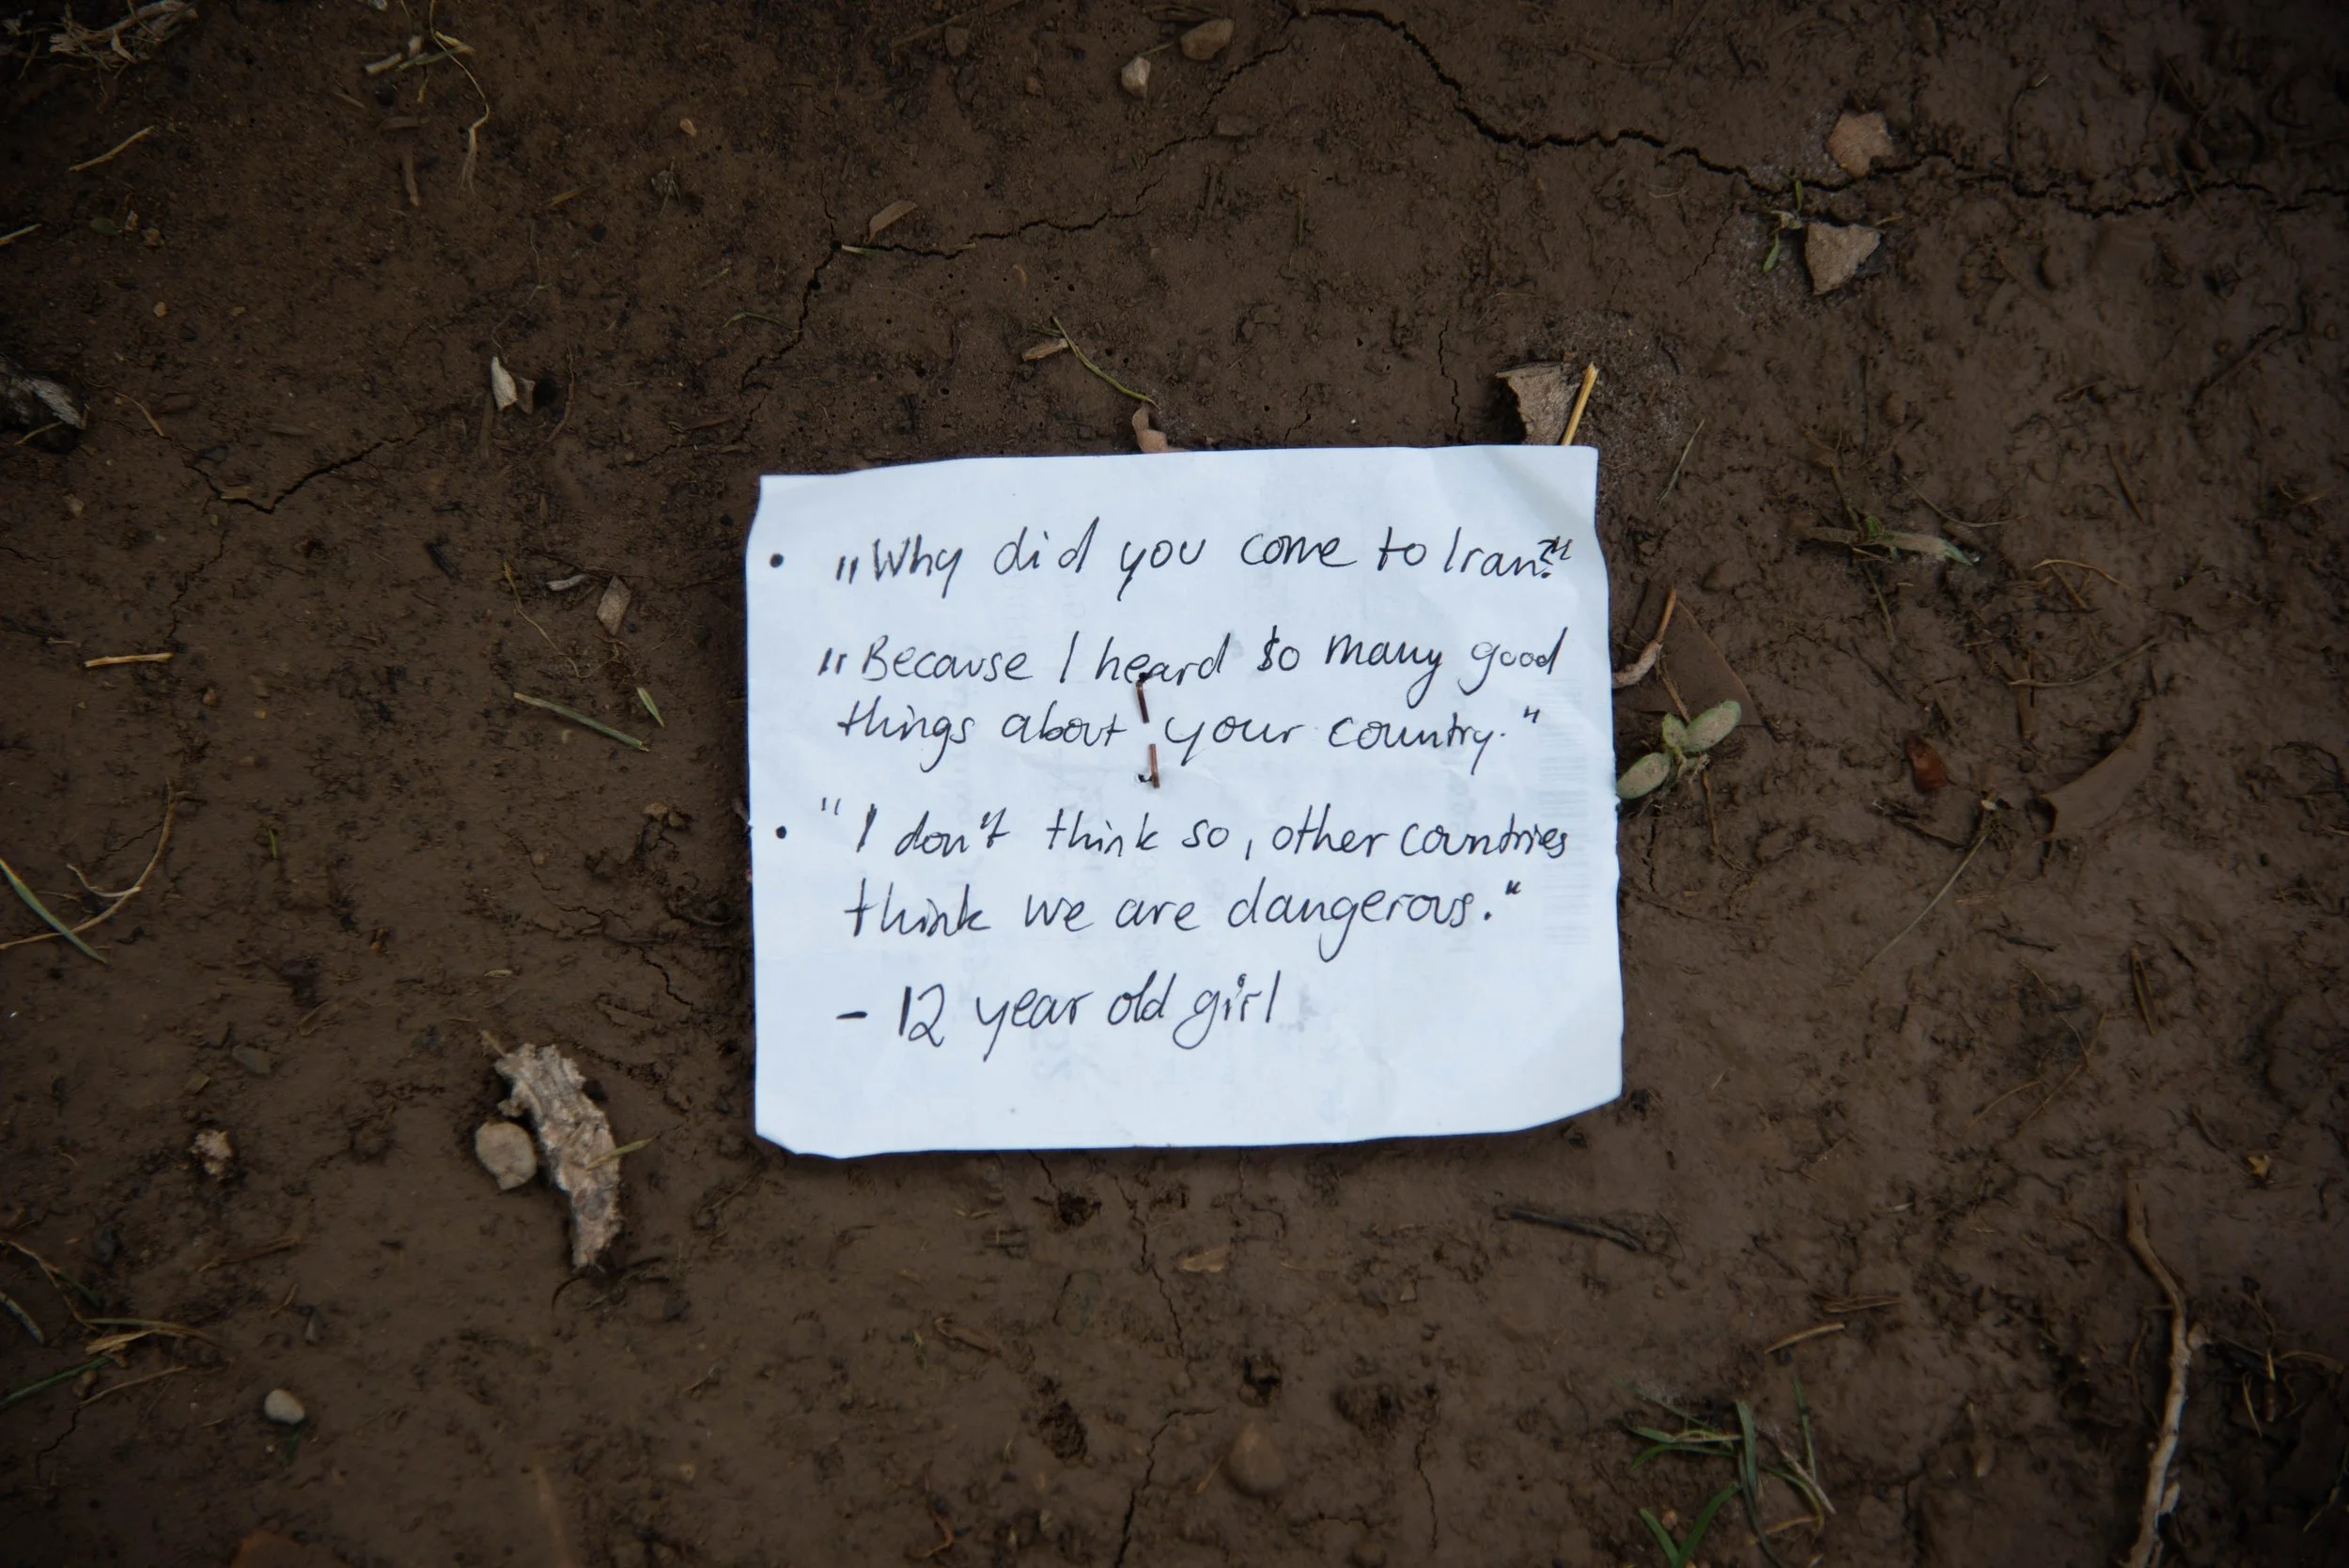 • „Why did you come to Iran?"
„Because I heard so many good
things about your country."
• "I don't think so, other countries
think we are dangerous."
- 12 year old girl